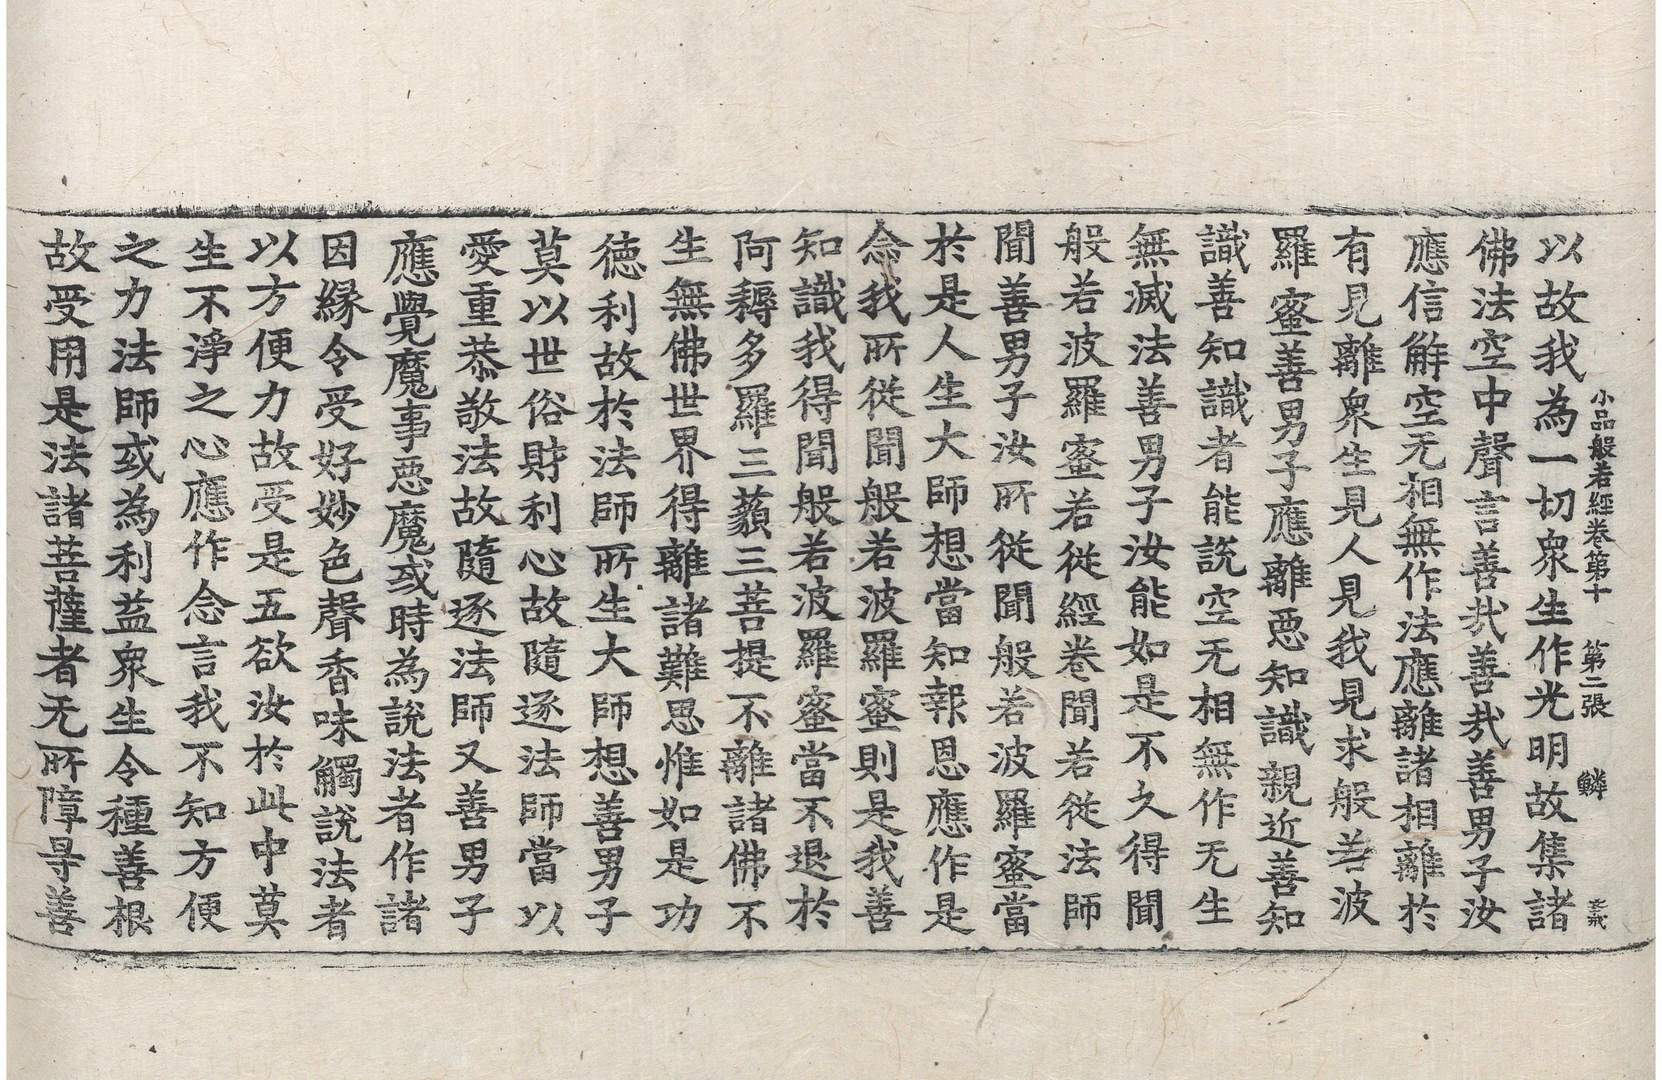 小品般若經卷第十　第二張　鱗
以故我為一切衆生作光明故集諸
佛法空中聲言善㢤善㢤善男子汝
應信解空无相無作法應離諸相離於
有見離衆生見人見我見求般若波
羅蜜善男子應離惡知識親近善知
識善知識者能說空无相無作无生
無滅法善男子汝能如是不久得聞
般若波羅蜜若從經卷聞若從法師
聞善男子汝所從聞般若波羅蜜當
於是人生大師想當知報恩應作是
念我所從聞般若波羅蜜則是我善
知識我得聞般若波羅蜜當不退於
阿耨多羅三藐三菩提不離諸佛不
生無佛世界得離諸難思惟如是功
德利故於法師所生大師想善男子
莫以世俗財利心故隨逐法師當以
愛重恭敬法故隨逐法師又善男子
應覺魔事惡魔或時為說法者作諸
因緣令受好妙色聲香味觸說法者
以方便力故受是五欲汝於此中莫
生不淨之心應作念言我不知方便
之力法師或為利益衆生令種善根
故受用是法諸菩薩者无所障㝵善